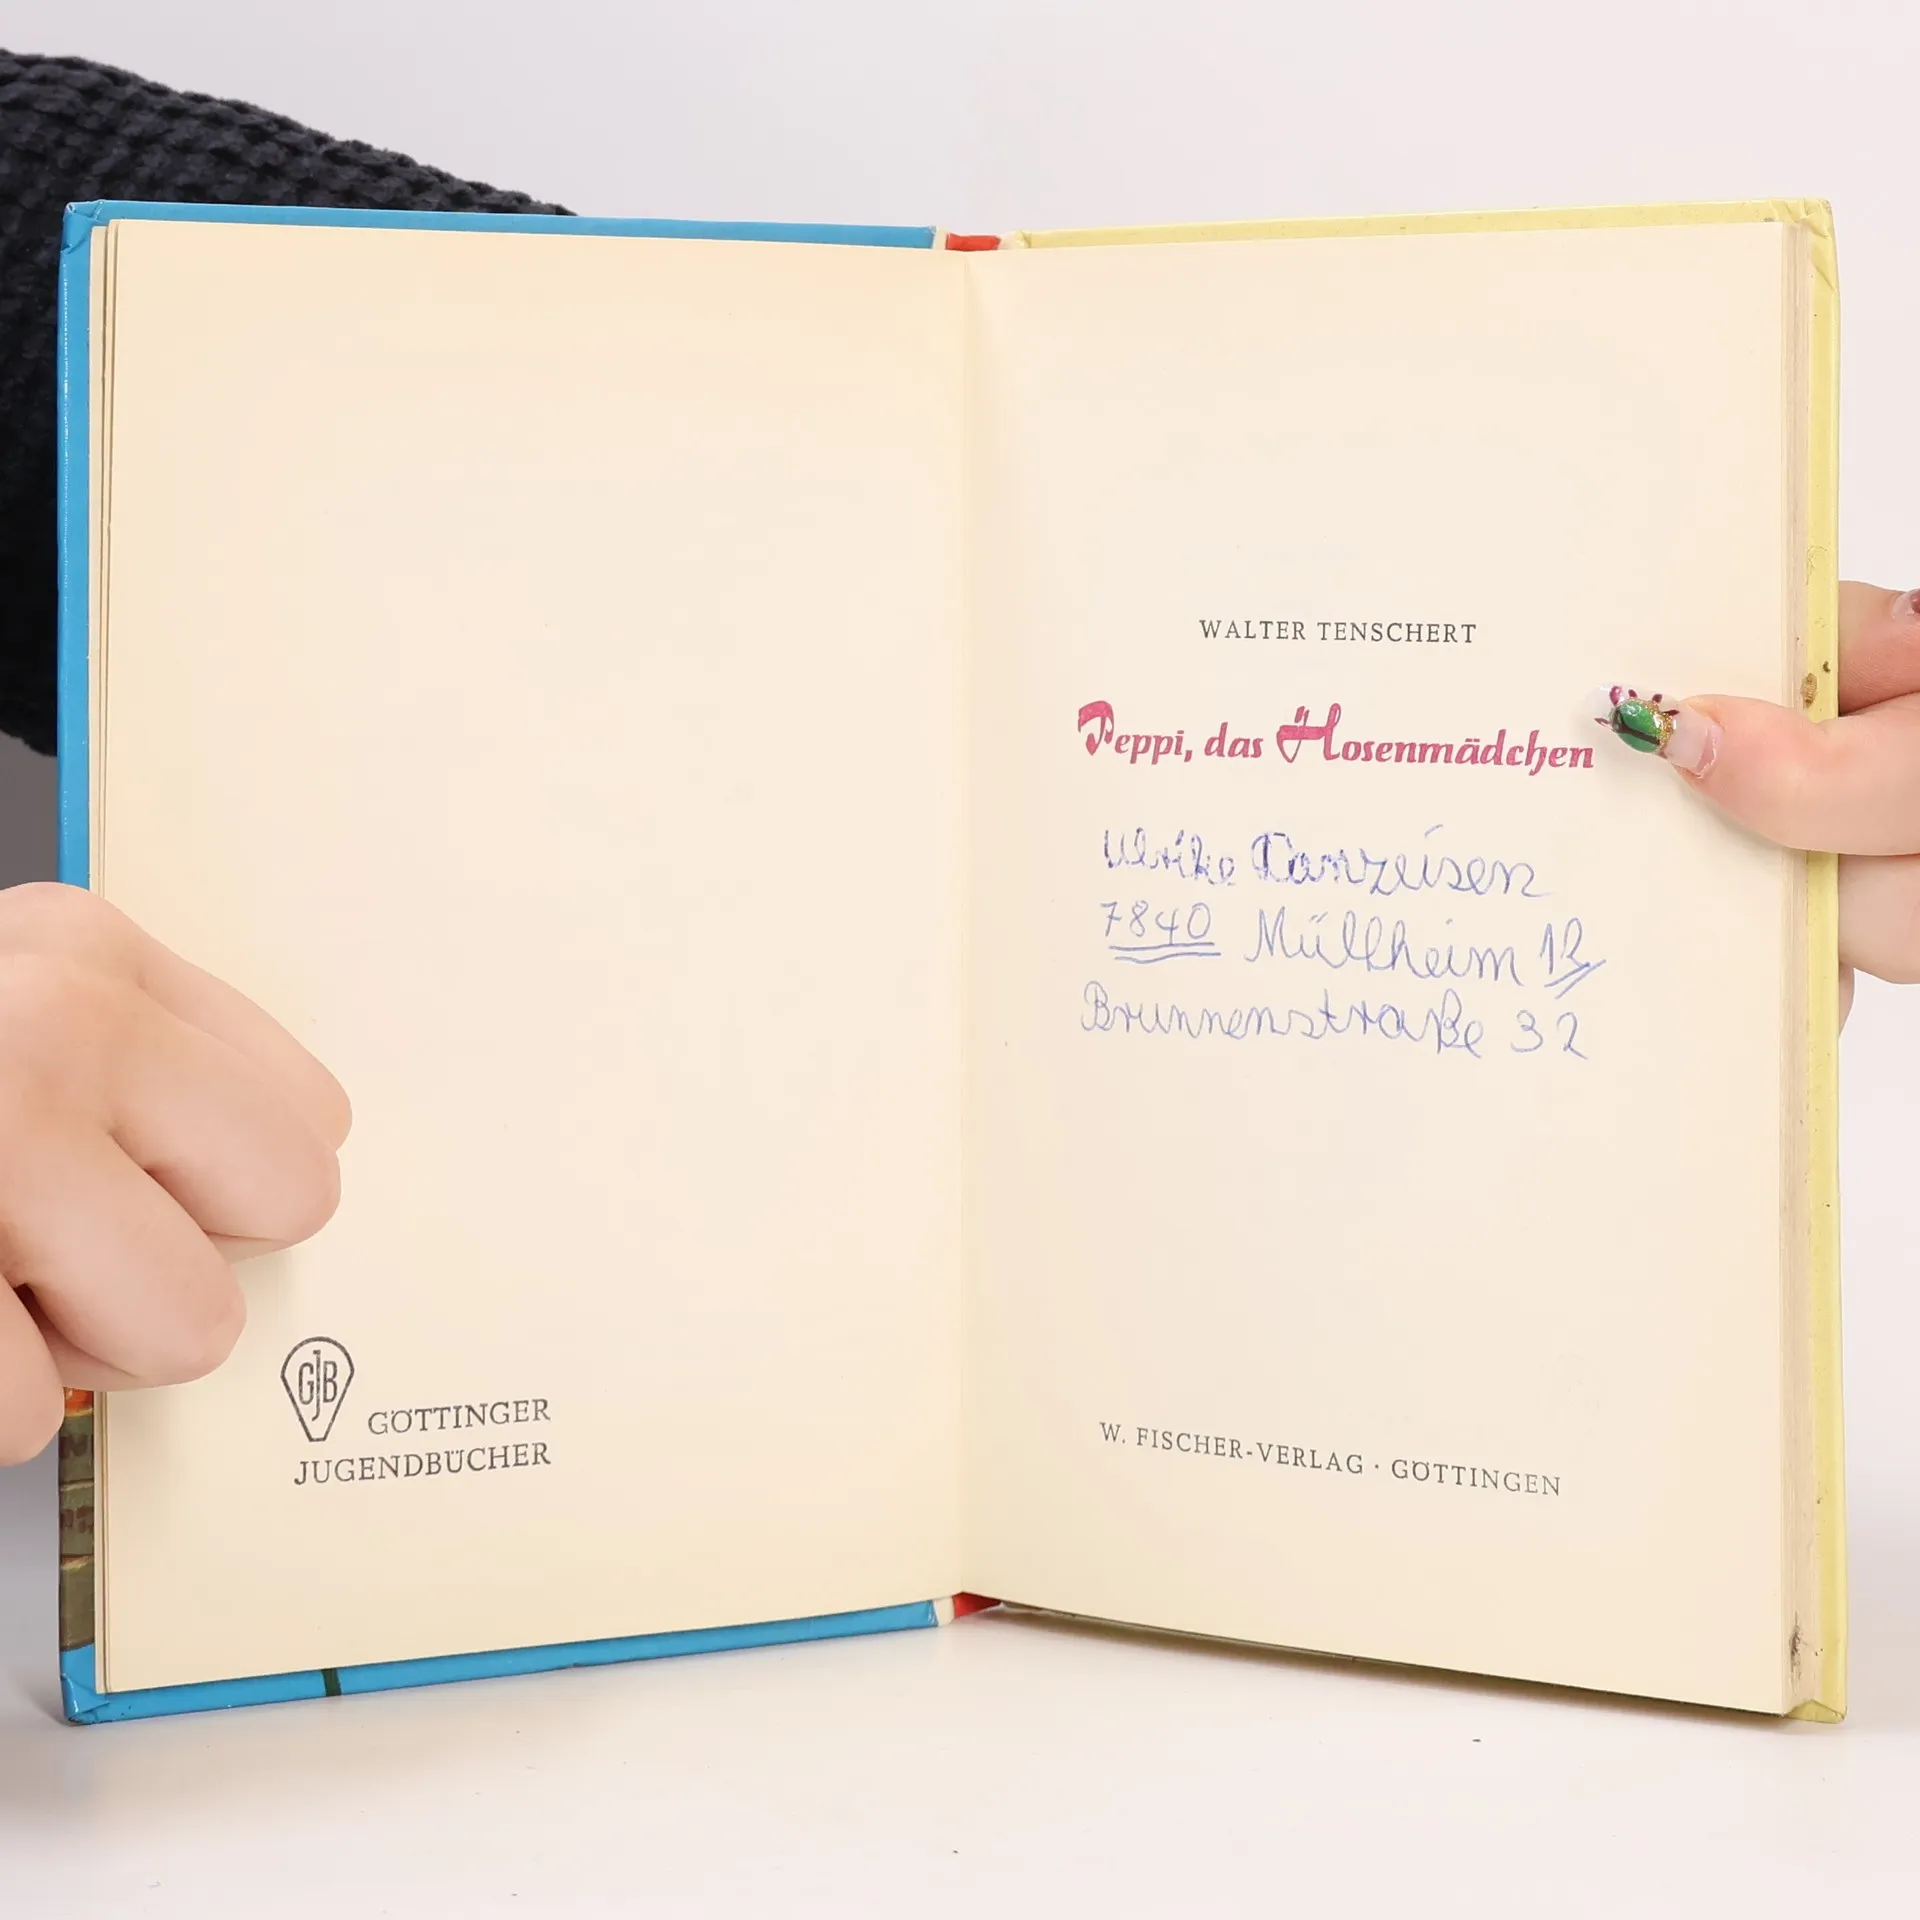 GJB
GÖTTINGER
JUGENDBÜCHER
WALTER TENSCHERT
Peppi, das Hosenmädchen
Ulrike
7840 Müllheim 12
Brunnenstraße 32
W. FISCHER-VERLAG · GÖTTINGEN